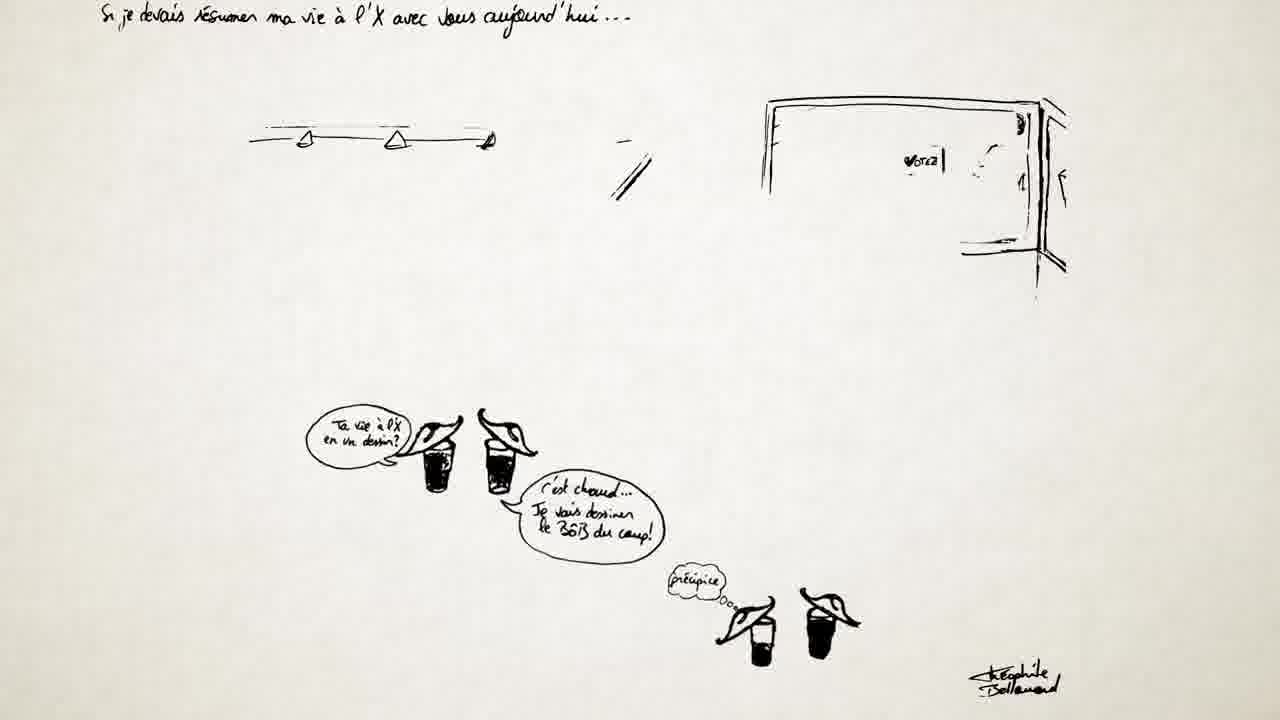 Si je devais résumer ma vie à l'X avec vous aujourd'hui...
VOTEZ
Ta vie à l'X
en un dessin?
C'est chaud...
Je vais dessiner
le BôB du coup!
précipice
Théophile